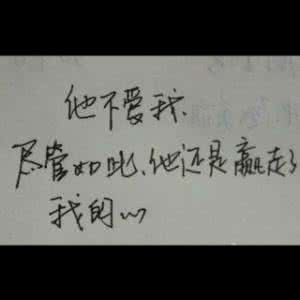 他不爱我.
尽管如此、他还是赢走了
我的心